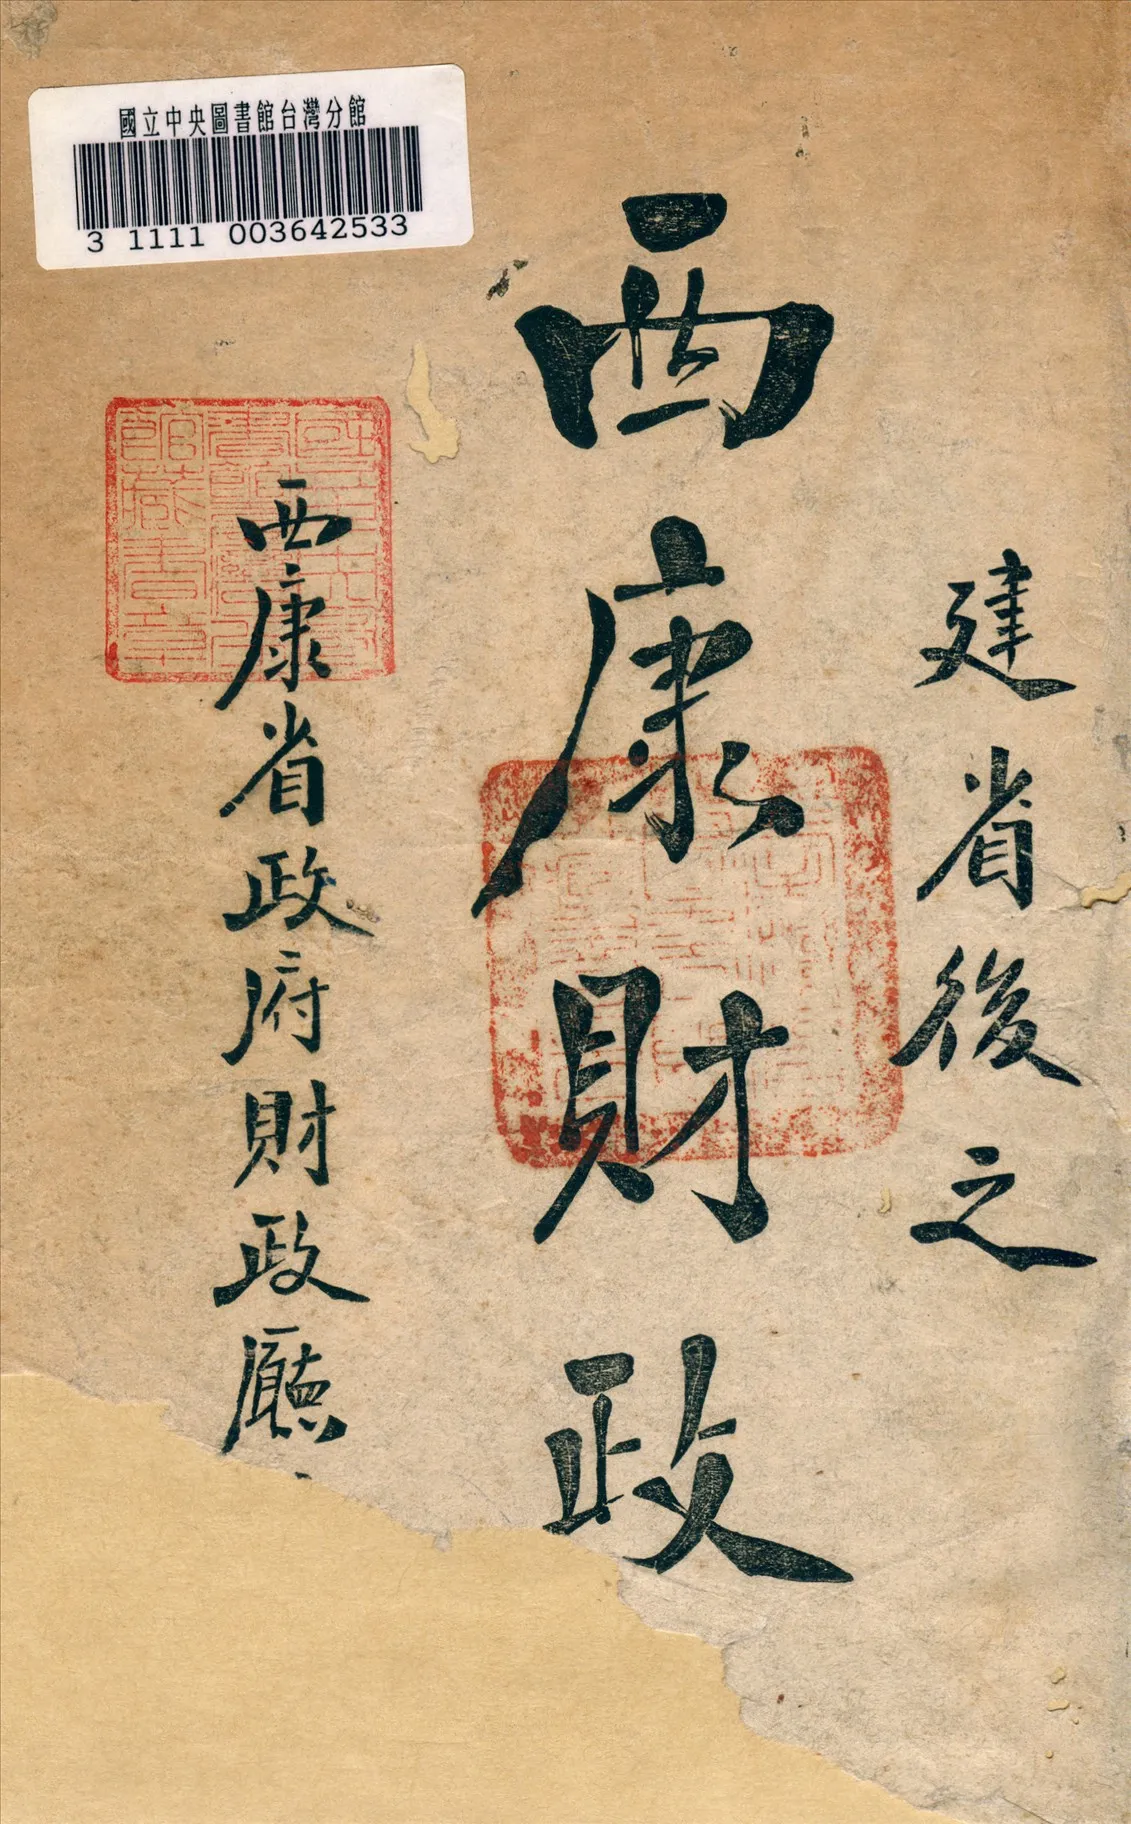 國立中央圖書館台灣分館
3 1111 003642533
建省後之
西康財政
西康省政府財政廳